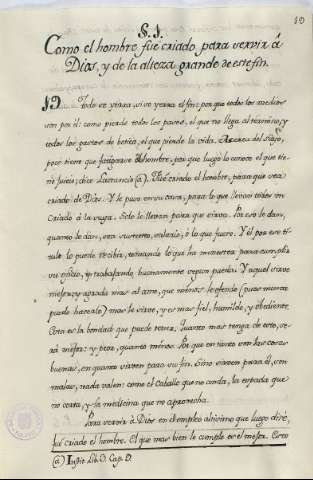 10
§. I.
Como el hombre fue criado para servir á
Dios, y de la alteza grande de este fin.
Todo se yerra si se yerra el fin: por que todos los medios
son por él: como pierde todos los pasos, el que no llega al termino, y
todos los gastos de botica, el que pierde la vida. Acerca del suyo,
poco tiene que fatigarse el hombre, pues que luego lo conoce el que tie-
ne juicio, dice Lactancio (a). Fue criado el hombre, para que sea
criado de Dios. Y le puso en su casa, para lo que llevan todos un
criado á la suya. Solo le llevan para que sirva. Por eso le dan,
quanto le dan, sea sustento, salario, ó lo que fuere. Y él por ese ti-
tulo lo puede recibir, tomando lo que ha menester para cumplir
su oficio, y trabajando, buenamente segun pueda. Y aquel sirve
mejor, y agrada mas al amo, que no le ofende (pues nunca
puede hacerlo) mas le sirve, y es mas fiel, humilde, y obediente.
Esta es la bondad que puede tener. Quanto mas tenga de esto, se-
rá mejor: y peor, quanto menos. Por que en tanto son las cosas
buenas, en quanto sirven para su fin. Sino sirven para él, son
malas, nada valen: como el caballo que no anda, la espada que
no corta, y la medicina que no aprovecha.
Para servir á Dios en el empleo altisimo que luego diré,
fué criado el hombre. El que mas bien le cumple es el mejor. Esto
(a) Instit. Lib. 3. Cap. 9.